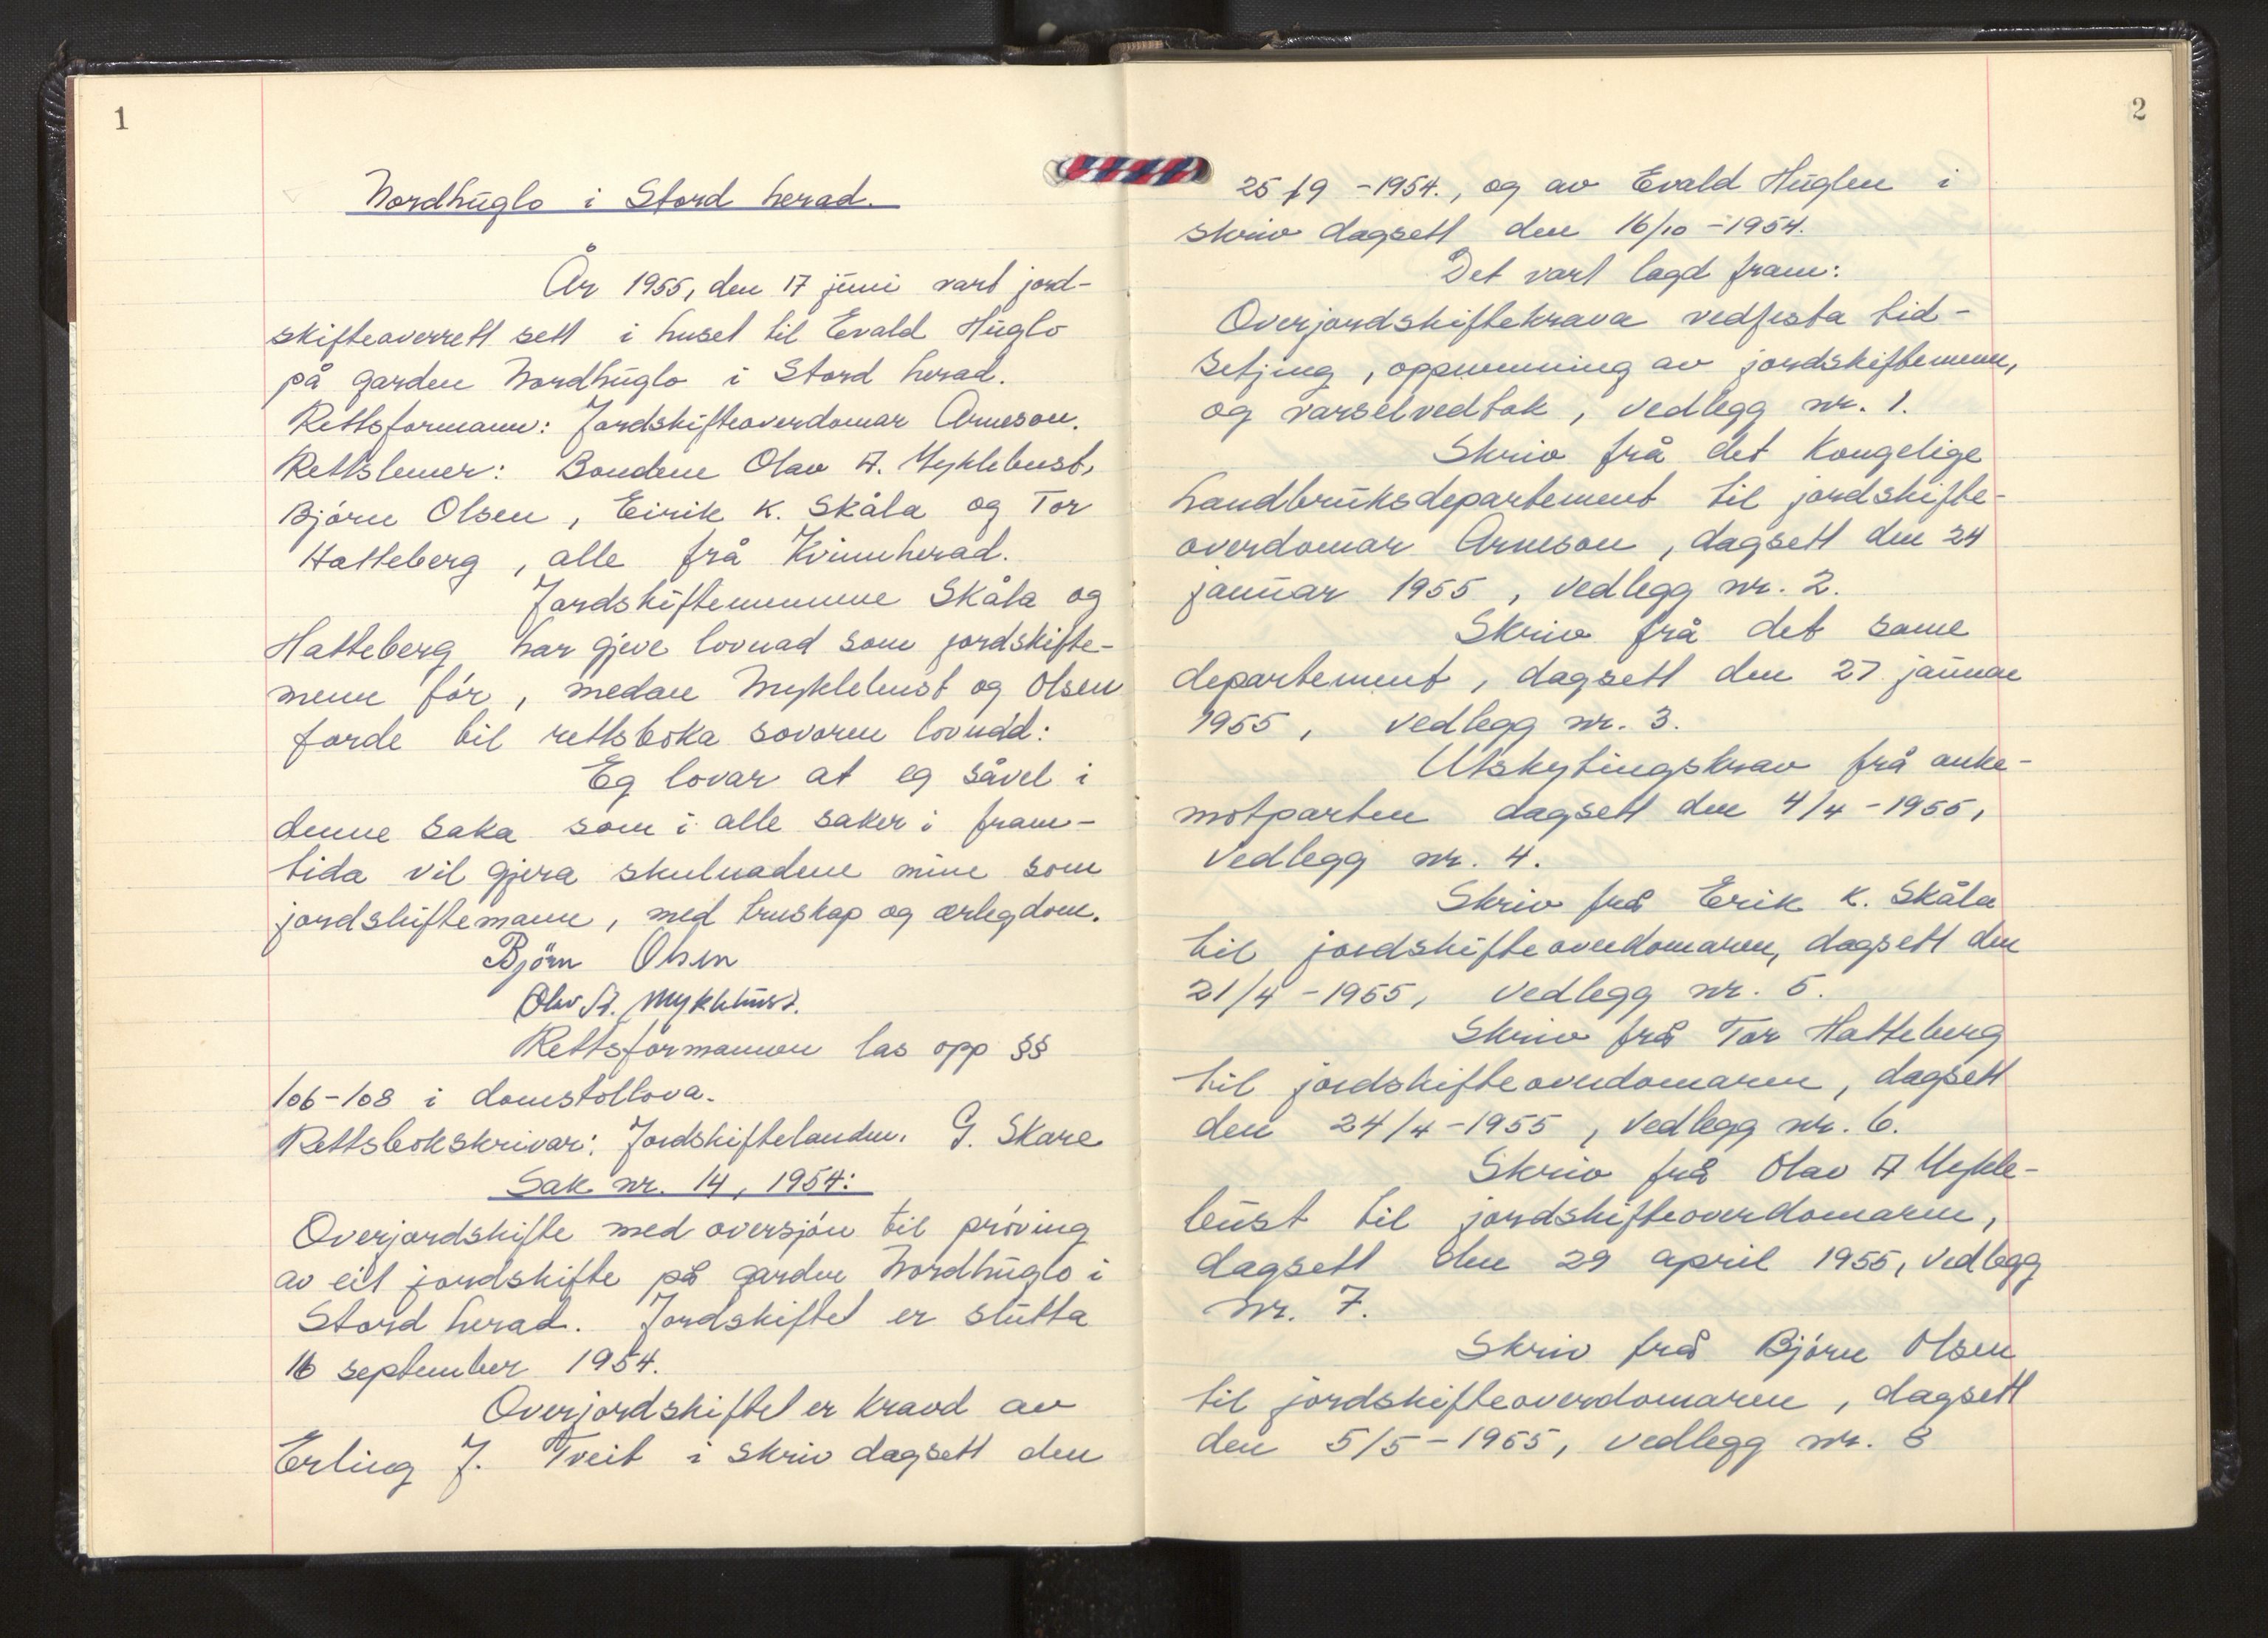 1
Nordhuglo i Stord herad.
År 1955, den 17 juni vart jord-
skifteoverrett sett i huset til Evald Huglo
på garden Nordhuglo i Stord herad.
Rettsformann: Jordskifteoverdomar Arneson.
Rettslemer: Bøndene Olav A. Myklebust,
Bjørn Olsen, Eirik K. Skåla og Tor
Hatteberg, alle frå Kvinnherad.
Jordskiftemennene Skåla og
Hatteberg har gjeve lovnad som jordskifte-
menn før, medan Myklebust og Olsen
førde til rettsboka sovoren lovnad:
Eg lovar at eg såvel i
denne saka som i alle saker i fram-
tida vil gjera skulnadene mine som
jordskiftemann, med truskap og ærlegdom.
Björn Olsen
Olav A. Myklebust.
Rettsformannen las opp §§
106-108 i domstollova.
Rettsbokskrivar: Jordskiftekanden. G. Skare
Sak nr. 14, 1954:
Overjordskifte med oversjøn til prøving
av eit jordskifte på garden Nordhuglo i
Stord herad. Jordskiftet er slutta
16 september 1954.
Overjordskiftet er kravd av
Erling J. Tveit i skriv dagsett den
2
25/9-1954., og av Evald Huglen i
skriv dagsett den 16/10-1954.
Det vart lagd fram:
Overjordskiftekrava vedfesta tid-
setjing, oppnemning av jordskiftemenn,
og varselvedtak, vedlegg nr. 1.
Skriv frå det Kongelige
Landbruksdepartement til jordskifte-
overdomar Arneson, dagsett den 24
januar 1955, vedlegg nr. 2.
Skriv frå det same
departement, dagsett den 27 januar
1955, vedlegg nr. 3.
Utskytingskrav frå anke-
motparten dagsett den 4/4-1955,
vedlegg nr. 4.
Skriv frå Erik K. Skåla
til jordskifteoverdomaren, dagsett den
21/4-1955, vedlegg nr. 5.
Skriv frå Tor Hatteberg
til jordskifteoverdomaren, dagsett
den 24/4-1955, vedlegg nr. 6.
Skriv frå Olav A Mykle-
bust til jordskifteoverdomaren,
dagsett den 29 april 1955, vedlegg
nr. 7.
Skriv frå Bjørn Olsen
til jordskifteoverdomaren, dagsett
den 5/5-1955, vedlegg nr. 8